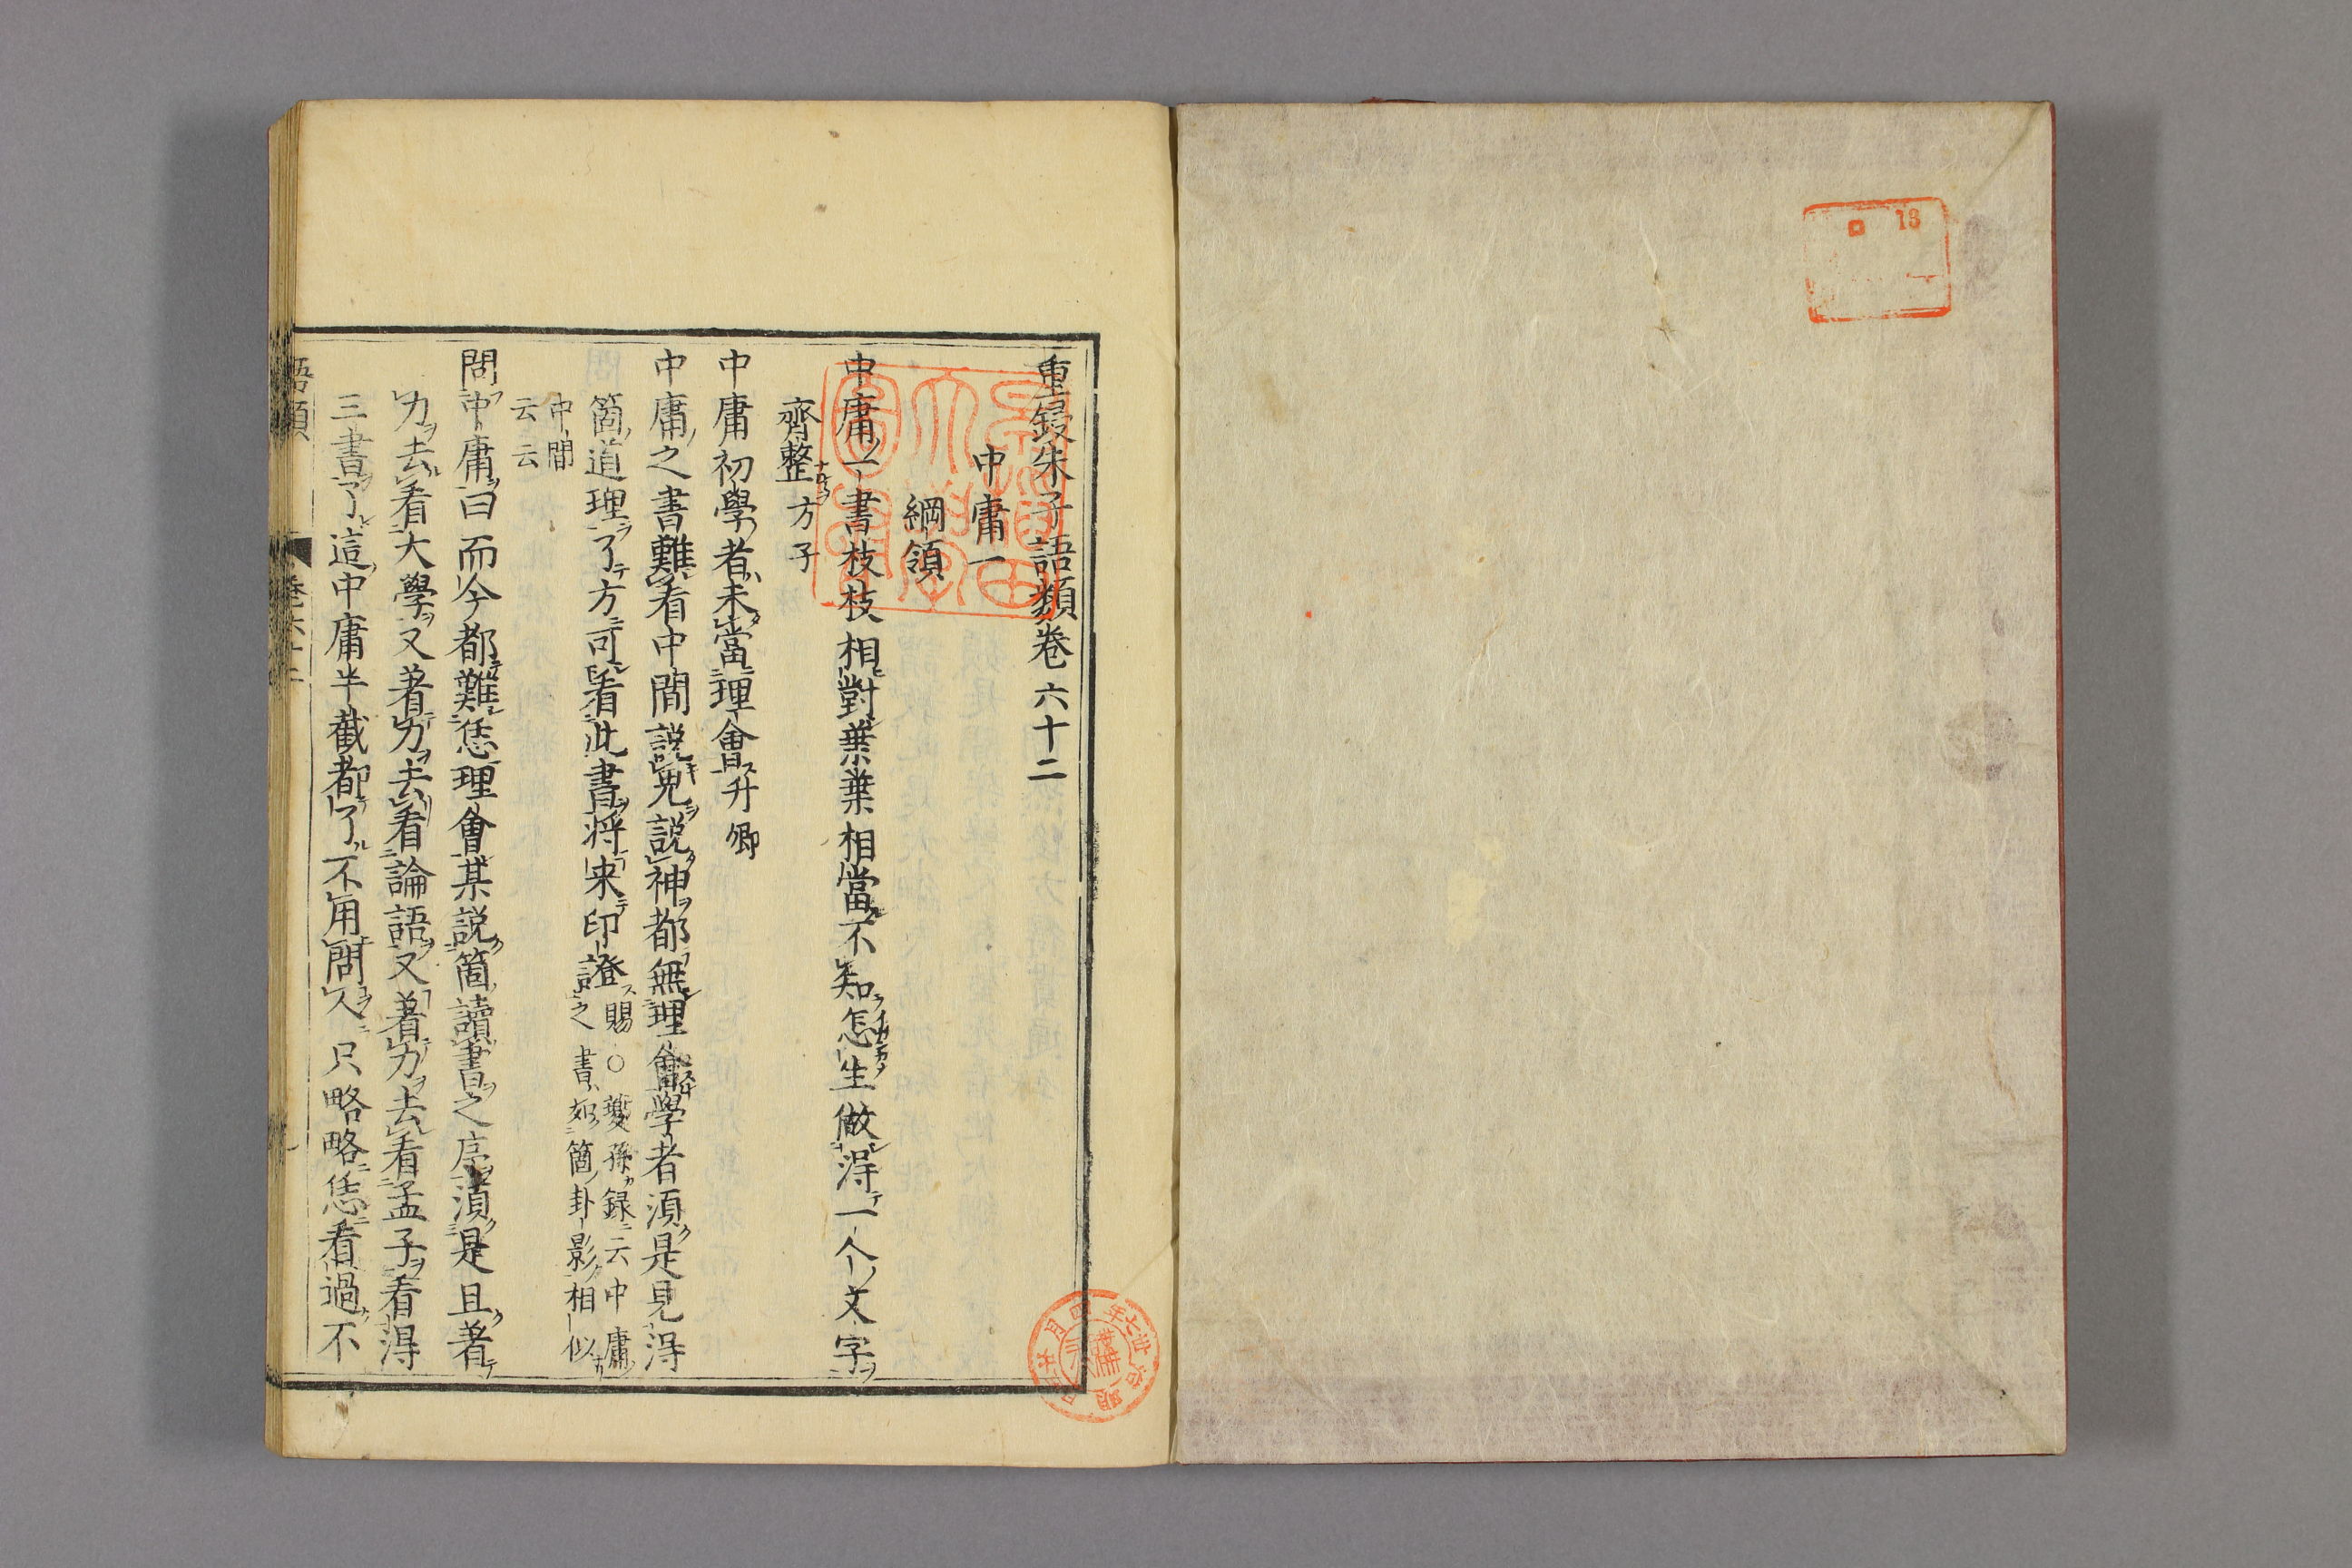 重鋟朱子語類卷六十二
中庸一
綱領
中庸一書枝枝相對葉葉相當不知怎生做得一个文字
齊整方子
中庸初學者未當理會升卿
中庸之書難看中間說鬼說神都無理會學者須是見得
箇道理了方可看此書將来印證賜○夔孫録云中庸之書如箇卦影相似
中間云云
問中庸曰而今都難恁理會某説箇讀書之序須是且著
力去看大學又著力去看論語又著力去看孟子看得
三書了這中庸半截都了不用問人只略略恁看過不
語類 卷六十二
13